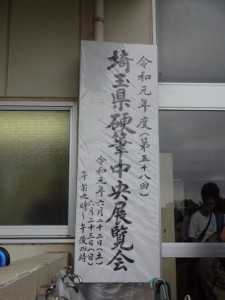 令和元年度(第五十八回)
埼玉県硬筆中央展覧会
令和元年六月二十二日(土)
六月二十三日(日)
午前九時〜午後四時